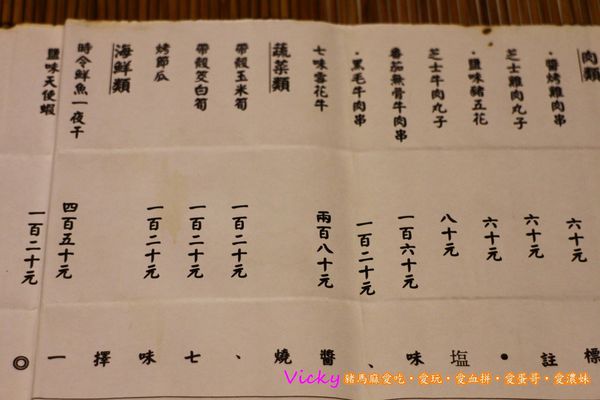 肉類
・醬烤雞肉串 六十元
芝士雞肉丸子 六十元
・鹽味豬五花 六十元
芝士牛肉丸子 八十元
番茄無骨牛肉串 一百六十元
・黑毛牛肉串 一百二十元
七味雪花牛 兩百八十元
蔬菜類
帶殼玉米筍 一百二十元
帶殼茭白筍 一百二十元
烤節瓜 一百二十元
海鮮類
時令鮮魚一夜干 四百五十元
鹽味天使蝦 一百二十元
標註•塩味、醬燒、七味擇一◎
Vicky豬馬麻愛吃・愛玩・愛血拼・愛蛋哥・愛濃妹